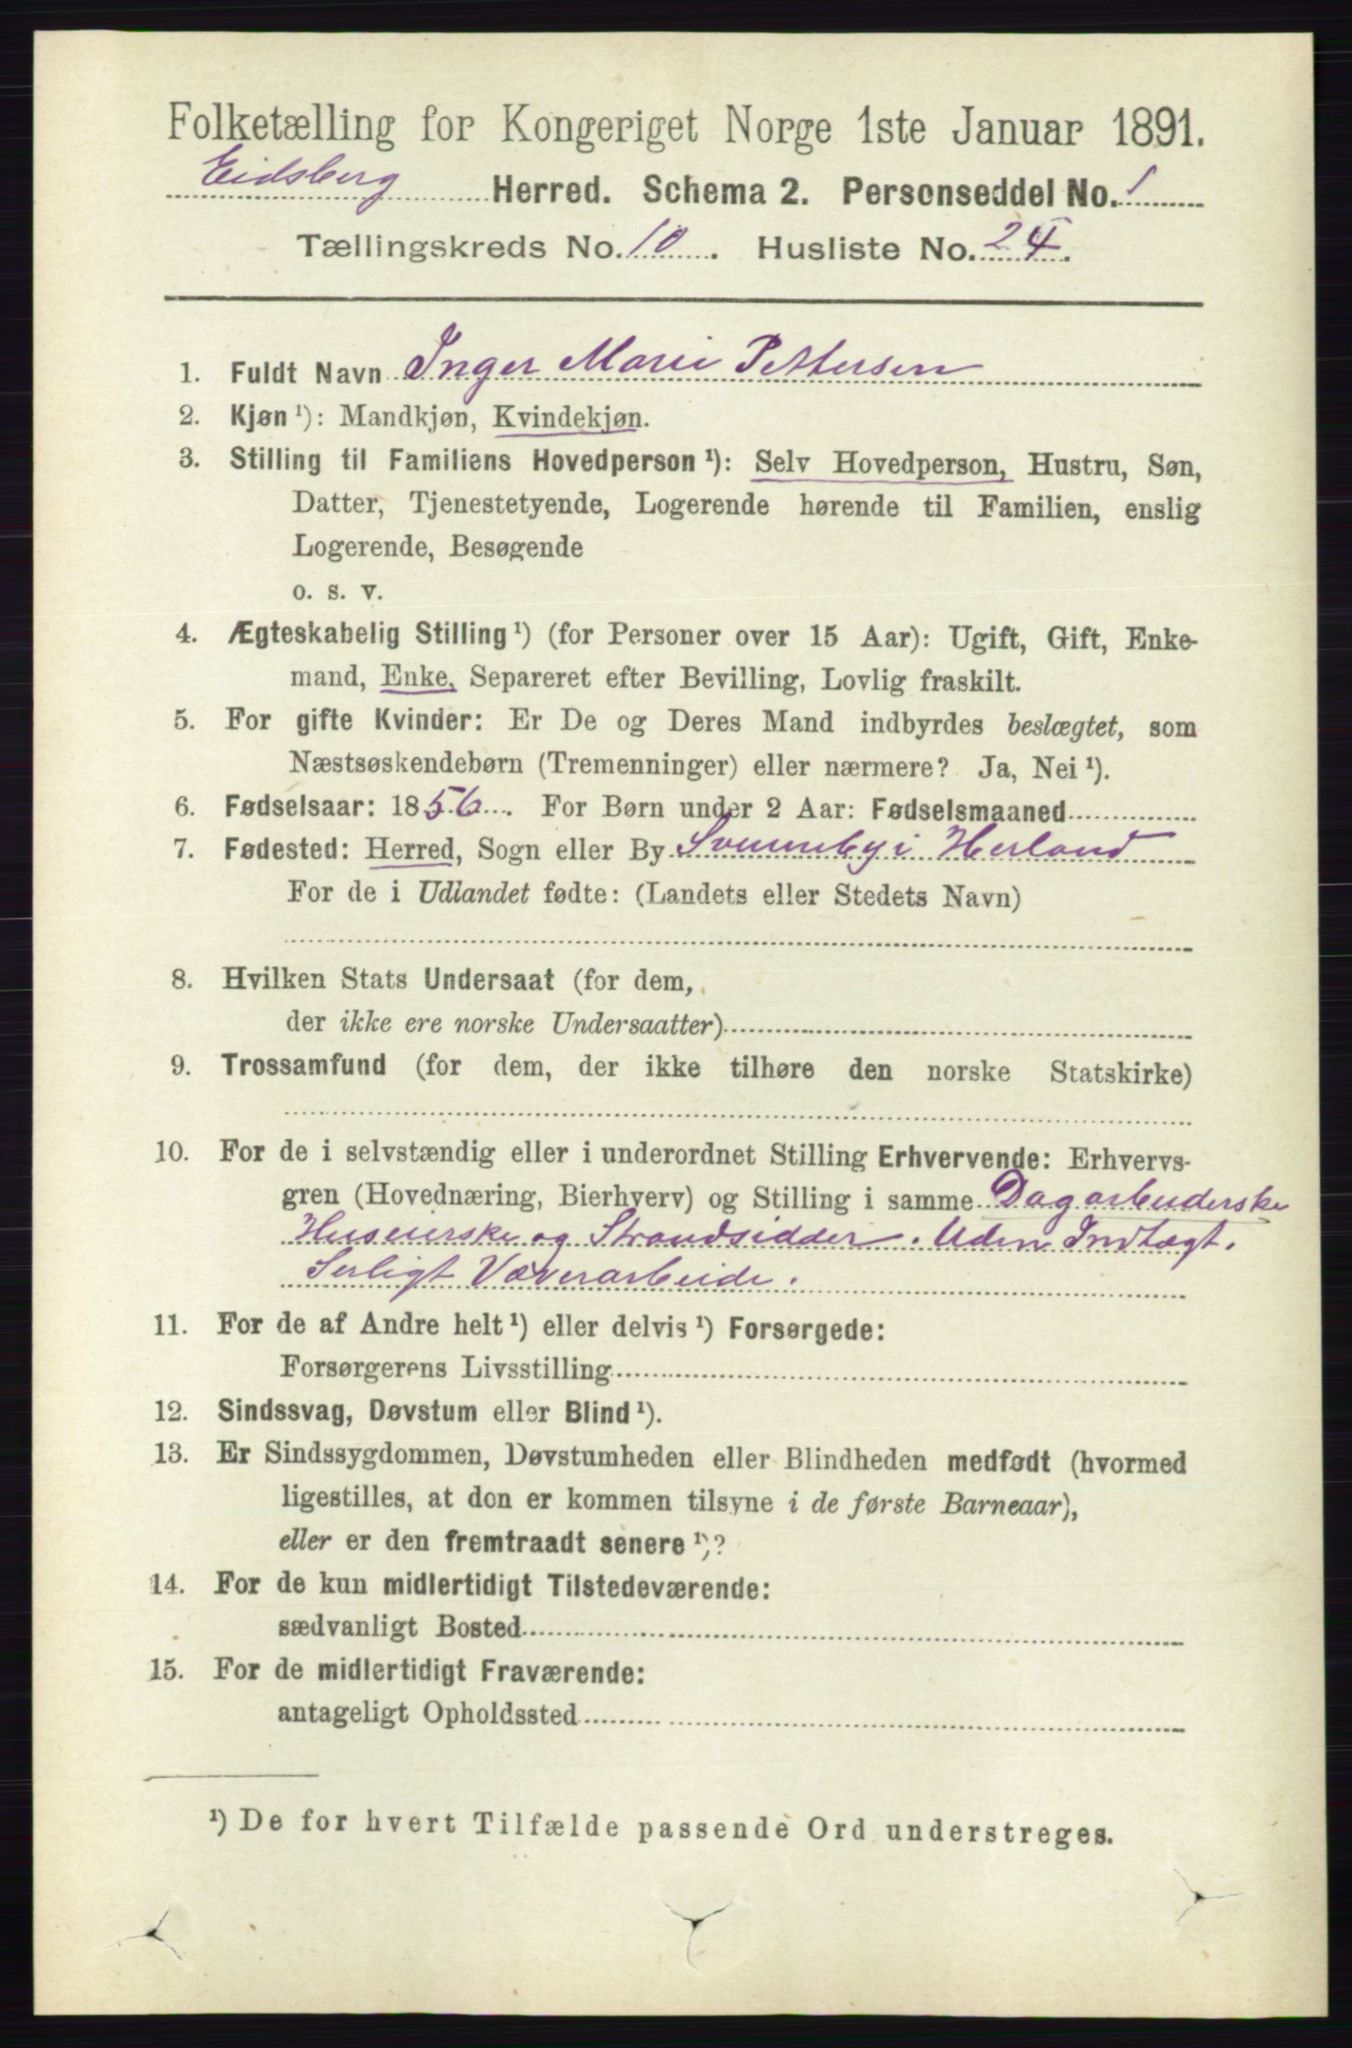 Folketælling for Kongeriget Norge 1ste Januar 1891.
Eidsberg Herred. Schema 2. Personseddel No. 1
Tællingskreds No. 10. Husliste No. 24.
1. Fuldt Navn Inger Marie Pettersen
2. Kjøn ¹): Mandkjøn, Kvindekjøn.
3. Stilling til Familiens Hovedperson ¹): Selv Hovedperson, Hustru, Søn,
Datter, Tjenestetyende, Logerende hørende til Familien, enslig
Logerende, Besøgende
o. s. v.
4. Ægteskabelig Stilling ¹) (for Personer over 15 Aar): Ugift, Gift, Enke-
mand, Enke, Separeret efter Bevilling, Lovlig fraskilt.
5. For gifte Kvinder: Er De og Deres Mand indbyrdes beslægtet, som
Næstsøskendebørn (Tremenninger) eller nærmere? Ja, Nei ¹).
6. Fødselsaar: 1856. For Børn under 2 Aar: Fødselsmaaned
7. Fødested: Herred, Sogn eller By i Herland
For de i Udlandet fødte: (Landets eller Stedets Navn)
8. Hvilken Stats Undersaat (for dem,
der ikke ere norske Undersaatter)
9. Trossamfund (for dem, der ikke tilhøre den norske Statskirke)
10. For de i selvstændig eller i underordnet Stilling Erhvervende: Erhvervs-
gren (Hovednæring, Bierhverv) og Stilling i samme Dagarbeiderske
Huseierske og Strandsidder. Uden Indtægt.
Serligt Væverarbeide.
11. For de af Andre helt ¹) eller delvis ¹) Forsørgede:
Forsørgerens Livsstilling
12. Sindssvag, Døvstum eller Blind ¹).
13. Er Sindssygdommen, Døvstumheden eller Blindheden medfødt (hvormed
ligestilles, at den er kommen tilsyne i de første Barneaar),
eller er den fremtraadt senere ¹)?
14. For de kun midlertidigt Tilstedeværende:
sædvanligt Bosted
15. For de midlertidigt Fraværende:
antageligt Opholdssted
¹) De for hvert Tilfælde passende Ord understreges.